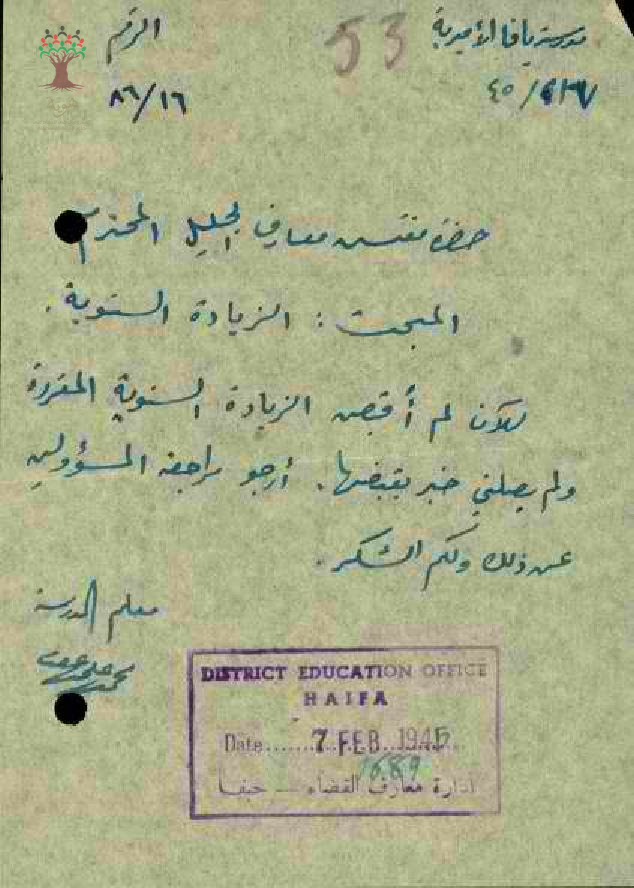 مدرسة يافا الأميرية
53
الرقم
٨٦/١٦
حضرة مفتش معارف الجليل المحترم
المبحث : الزيادة السنوية .
للآن لم أقبض الزيادة السنوية المقررة
ولم يصلني خبر بقبضها . أرجو مراجعة المسؤولين
عن ذلك ولكم الشكر .
معلم المدرسة
DISTRICT EDUCATION OFFICE
HAIFA
Date 7 FEB 1945
1689
ادارة معارف القضاء — حيفا